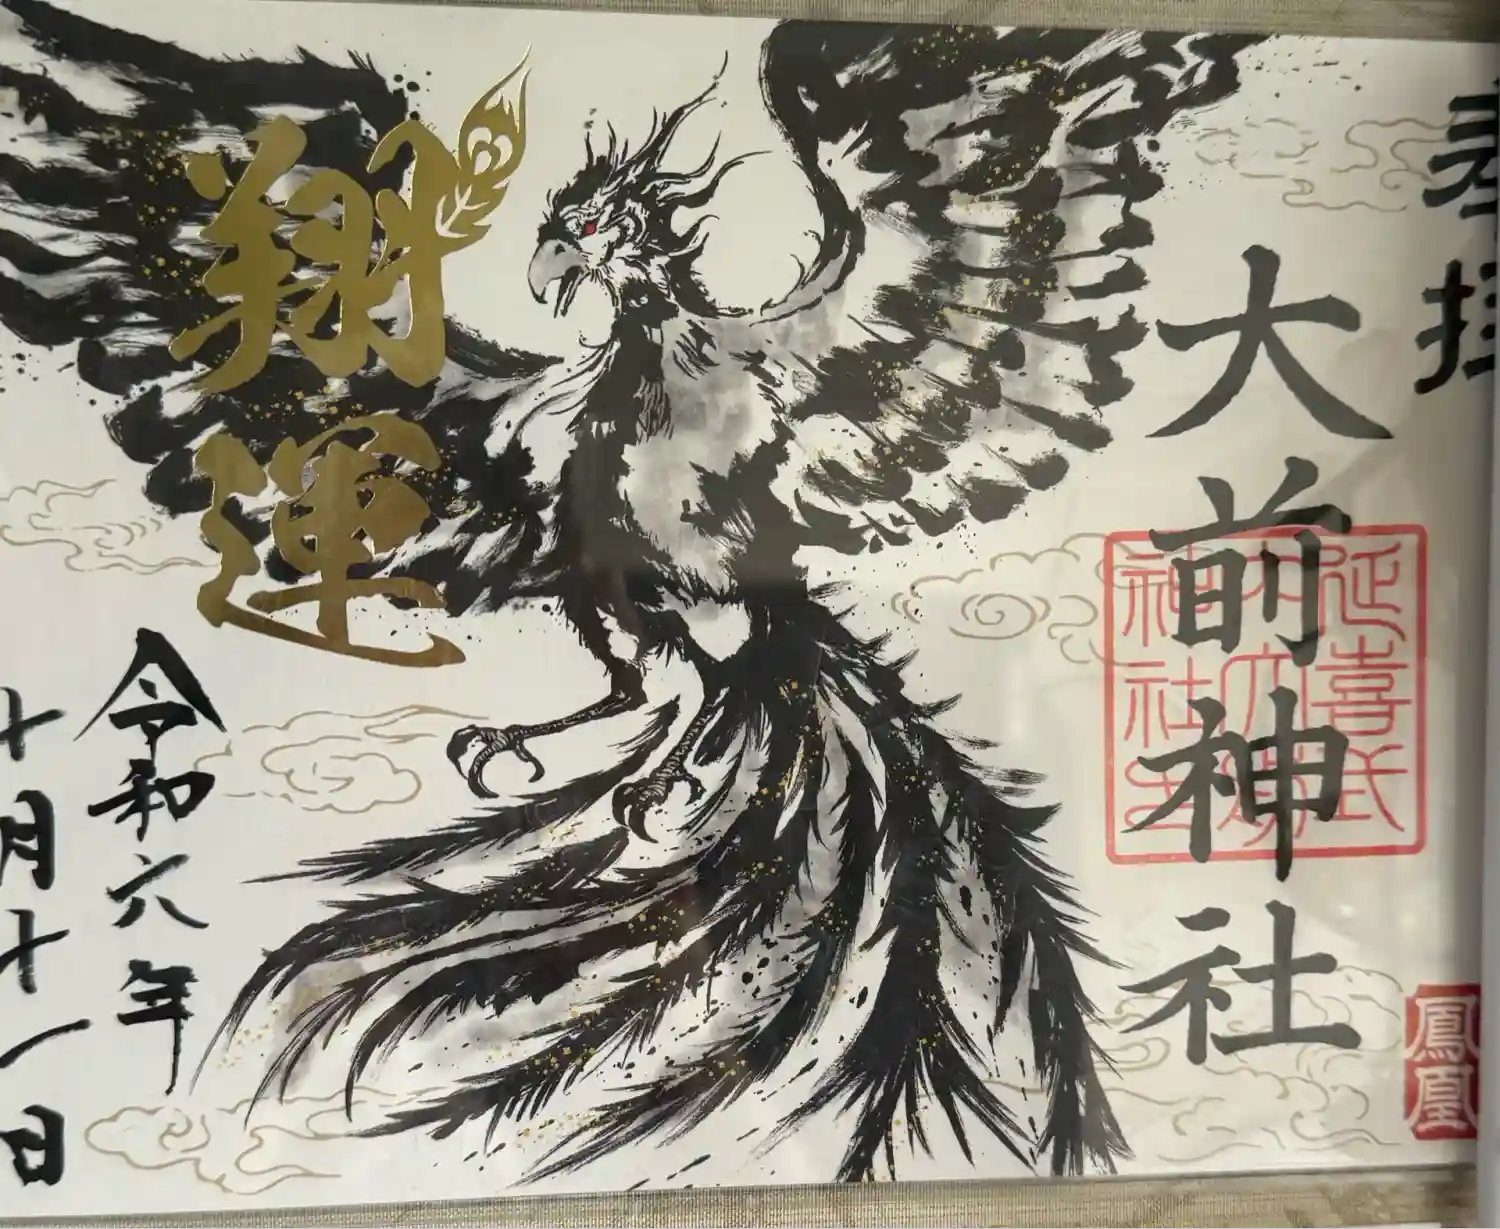 奉拝
大前神社
延喜式
内大前
神社之
鳳凰
翔運
令和六年
十月十一日